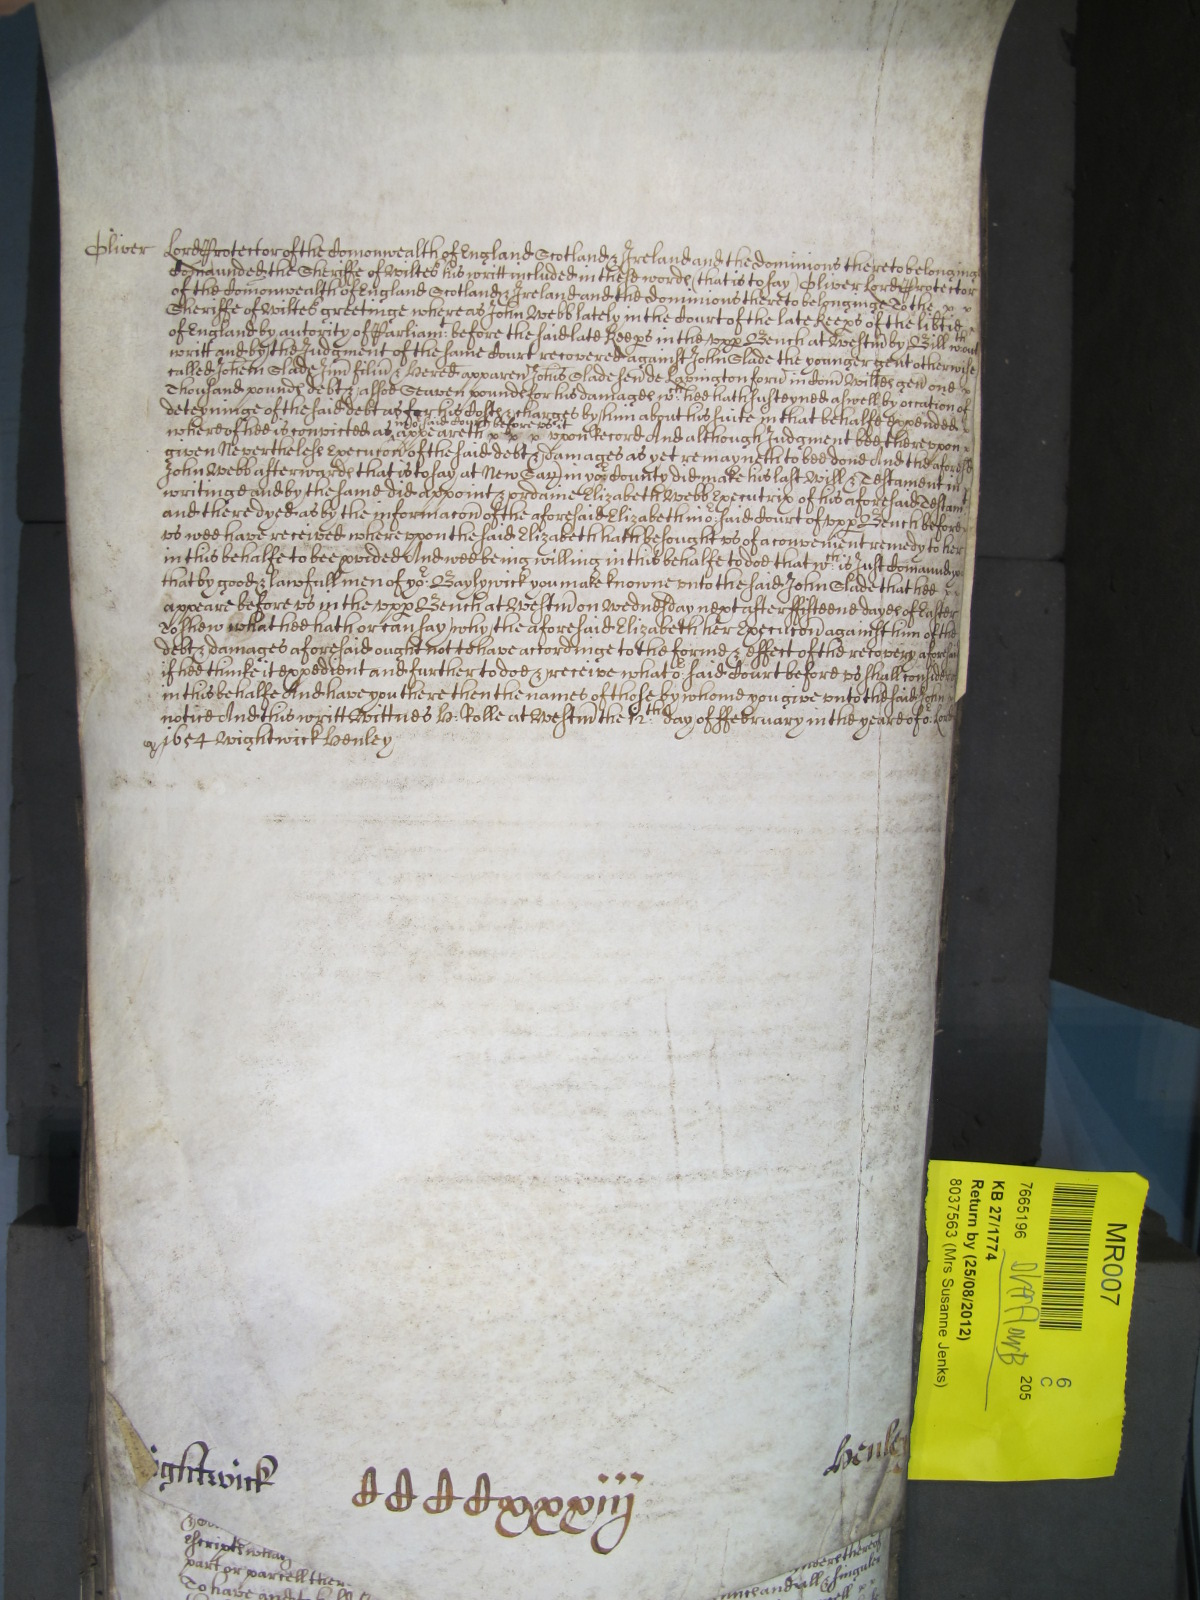 Oliver Lord Protector of the Comonwealth of England Scotland & Ireland and the dominions thereto belonging
Comaunded the Sheriffe of Wiltes his writt included in these words (that is to say) Oliver Lord Protector
of the Comonwealth of England Scotland & Ireland and the dominions thereto belonginge To the
Sheriffe of Wiltes greetinge whereas John Webb lately in the Court of the late Keeps of the libtie
of England by autority of Parliamt before the said late Keeps in the vpp Bench at Westm by Bill wthout
writt and by the Judgment of the same Court recovered against John Slade the younger gent otherwise
called Johem Slade Jun filiu & Hered apparen Johis Slade sen de Lavington forum in Com Wiltes gen one
Thousand pounds debt & allsoe Seaven pounds for his damages wch hee hath susteyned aswell by occation of
deteyninge of the said debt as for his Costs & charges by him about his suite in that behalfe expended
whereof hee is convicted as in or said Court before vs it appeareth vpon Record And although Judgment bee therevpon
given Neverthelesse Execucon of the said debt & damages as yet remayneth to bee done And the aforesd
John Webb afterwards that is to say at New Sarum in yor County did make his last Will & Testament in
writinge and by the same did appoint & ordaine Elizabeth Webb Executrix of his aforesaid Testamt
and there dyed as by the informacon of the aforesaid Elizabeth in or said Court of vpp Bench before
vs wee have received wherevpon the said Elizabeth hath besought vs of a convenient remedy to her
in this behalfe to bee pvided And wee being willing in this behalfe to doe that wch is Just Comaund you
that by good & lawfull men of yor Baylywick you make knowne vnto the said John Slade that hee
appeare before vs in the vpp Bench at Westm on Wednesday next after fifteene dayes of Easter
To shew what hee hath or can say why the aforesaid Elizabeth her Execucon against him of the
debt & damages aforesaid ought not to have accordinge to the forme & effect of the recovery aforesaid
if hee thinke it expedient and further to doe & receive what or said Court before vs shall consider
in this behalfe And have you there then the names of those by whome you give vnto the said John
notice And this writt Wittnes H: Rolle at Westm the 12th day of February in the yeare of or Lord
1654 Wightwick Henley
ightwick
CCCCxxxiij
Henley
escript
part or parcell ther
To have and
thereof
and all & singuler
MR007
7665196
6
C
205
KB 27/1774
Return by (25/08/2012)
8037563 (Mrs Susanne Jenks)